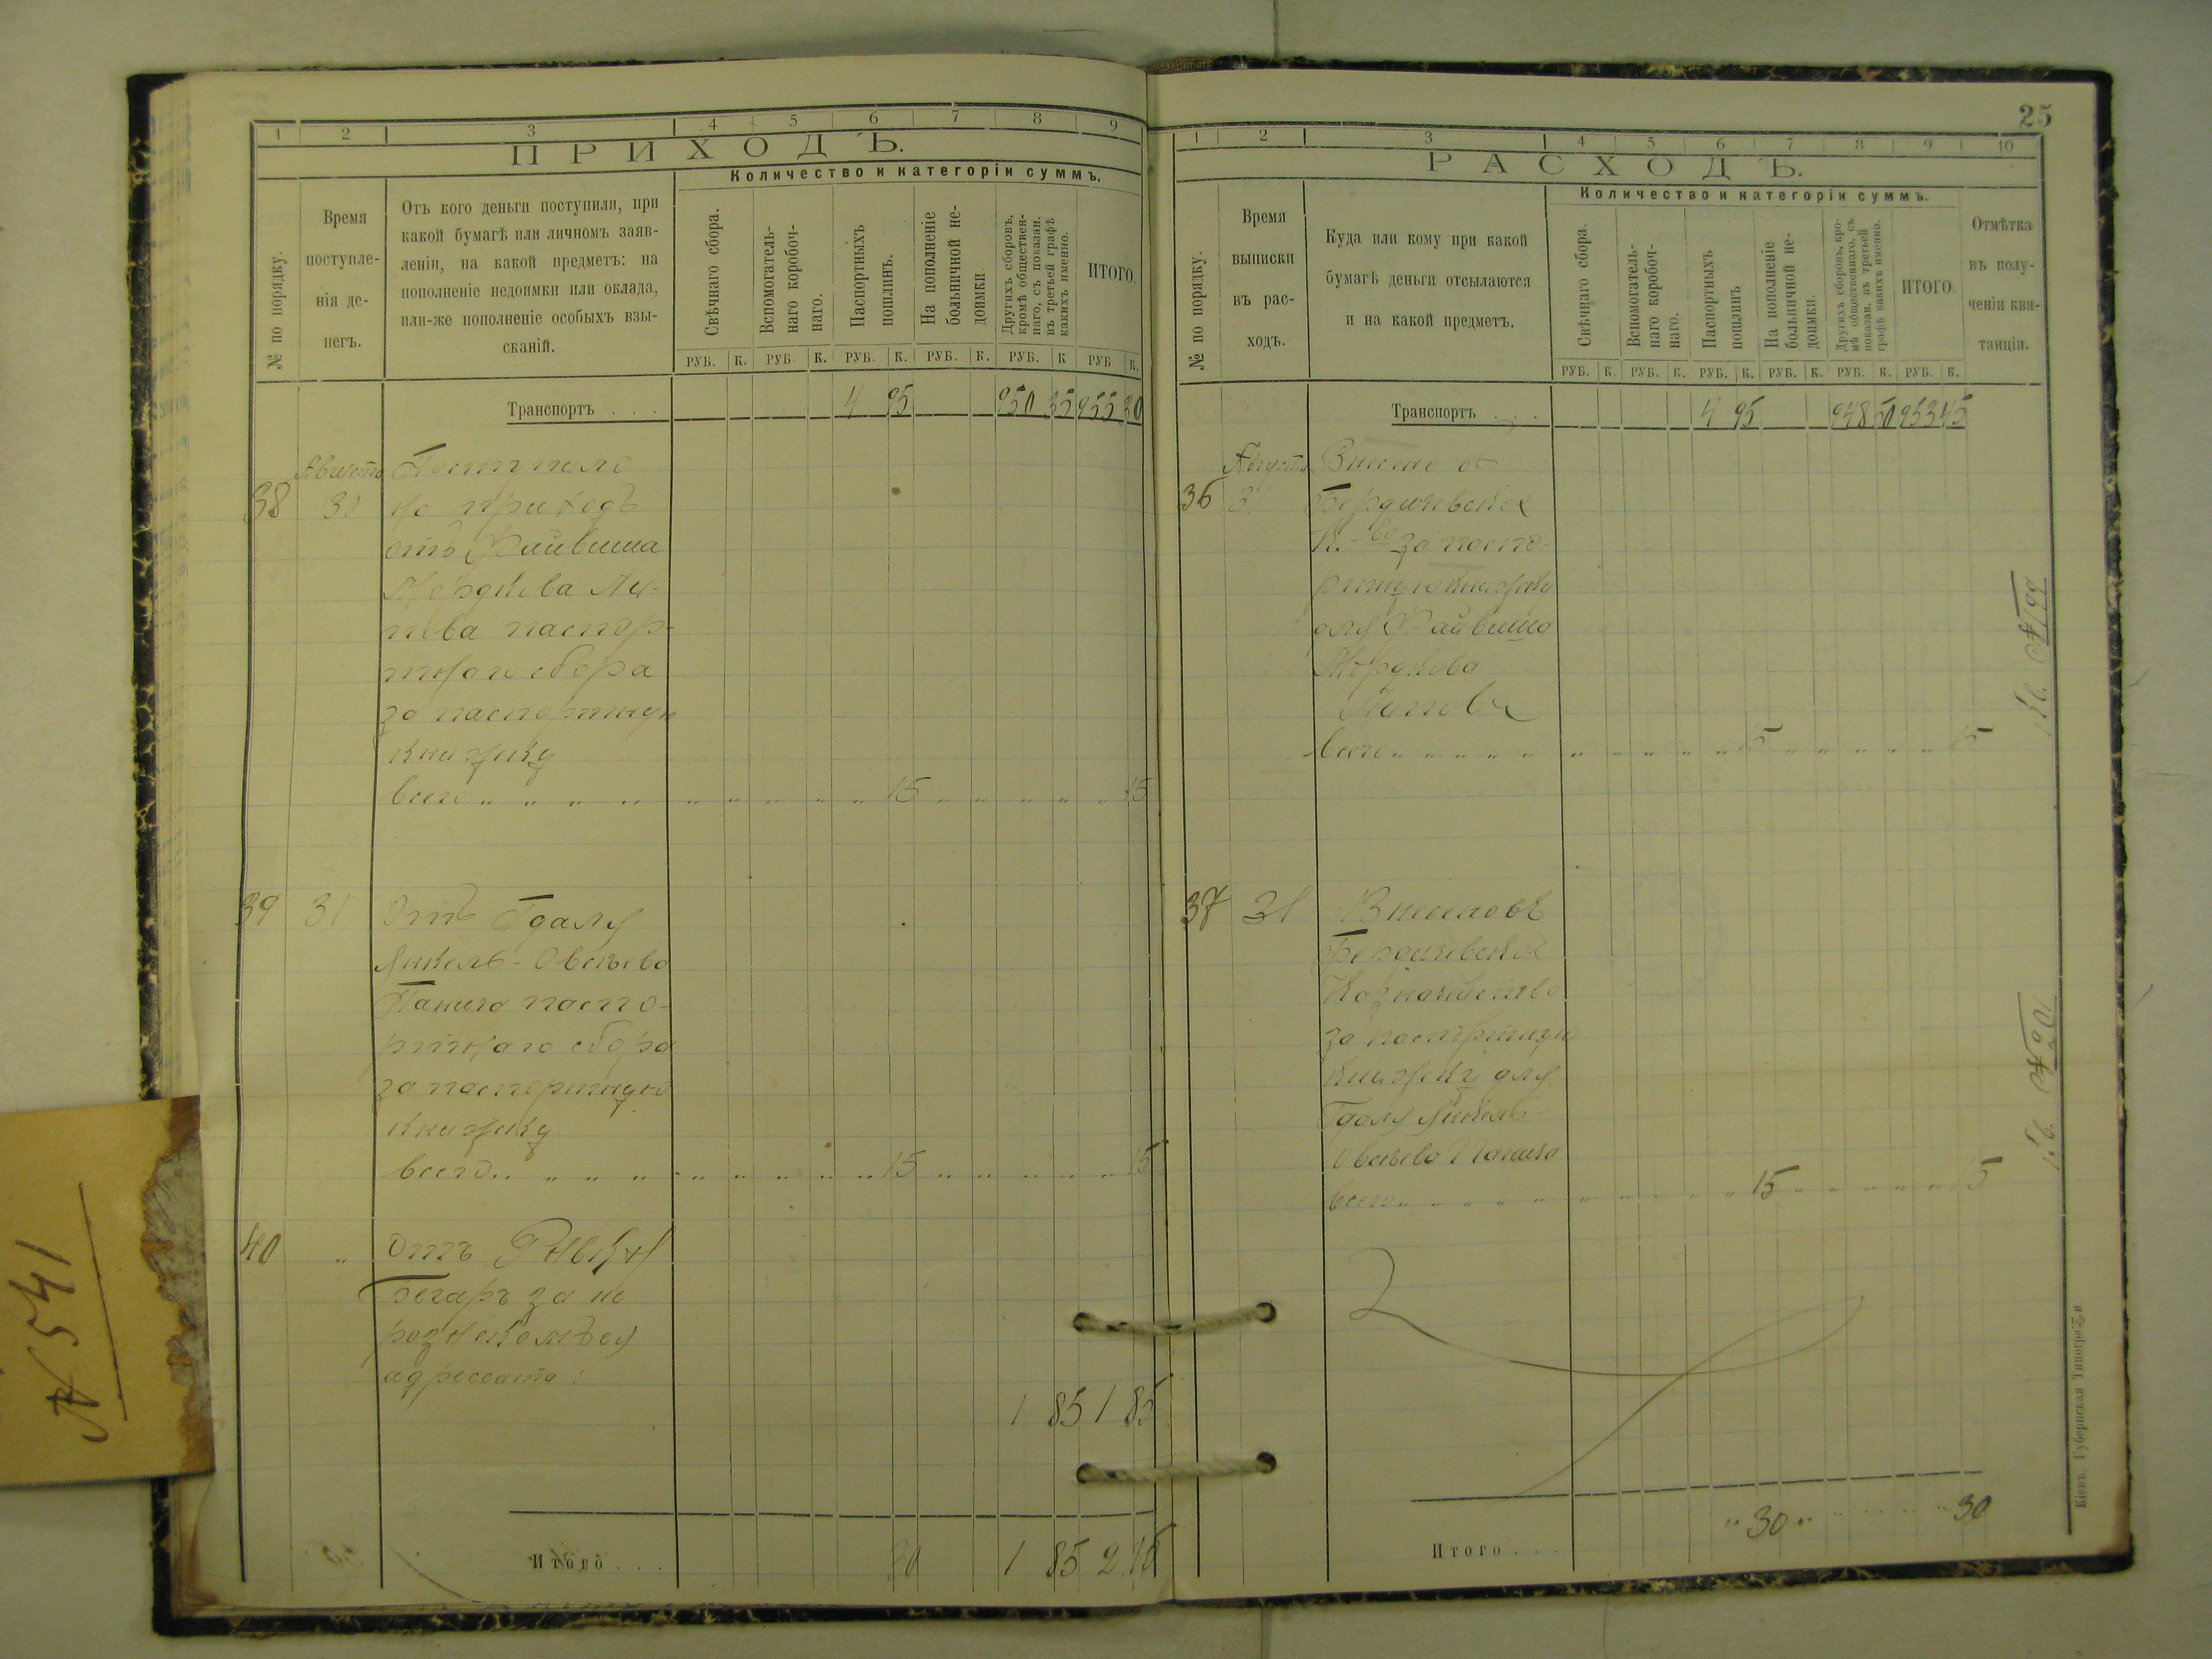 1 2 3 4 5 6 7 8 9
ПРИХОДЪ.
Количество и категоріи суммъ.
№ по порядку.
Время
поступле-
нія де-
негъ.
Отъ кого деньги поступили, при
какой бумагѣ или личномъ заяв-
леніи, на какой предметъ: на
пополненіе недоимки или оклада,
или-же пополненіе особыхъ взы-
сканій.
Свѣчнаго сбора.
Вспомогатель-
наго коробоч-
наго.
Паспортныхъ
пошлинъ.
На пополненіе
больничной не-
доимки
Другихъ сборовъ,
кромѣ обществен-
наго, съ показан.
въ третьей графѣ
какихъ именно.
ИТОГО.
РУБ. К. РУБ. К. РУБ. К. РУБ. К. РУБ. К РУБ К.
Транспортъ . . . 4 95 950 35 955 30
Августа Поступило
38 31 на приходъ
отъ Файвиша
Мордкова Ли-
пова паспор-
тнаго сбора
за паспортную
книжку
всего 15 15
39 31 Отъ Гдаля
Янкель-Овсѣева
Панича паспо-
ртнаго сбора
за паспортную
книжку
всего 15 15
40 " Отъ Рывки
Бегаръ за не
розысканіем
адрессата
1 85 1 85
Итого . . . 30 1 85 2 15
№ 541
25
1 2 3 4 5 6 7 8 9 10
РАСХОДЪ.
Количество и категоріи суммъ.
№ по порядку.
Время
выписки
въ рас-
ходъ.
Куда или кому при какой
бумагѣ деньги отсылаются
и на какой предметъ.
Свѣчнаго сбора.
Вспомогатель-
наго коробоч-
наго.
Паспортныхъ
пошлинъ
На пополненіе
больничной не-
доимки.
Другихъ сборовъ, кро-
мѣ общественнаго, съ
показан. въ третьей
графѣ какихъ именно.
ИТОГО.
Отмѣтка
въ полу-
ченіи кви-
танціи.
РУБ. К. РУБ. К. РУБ. К. РУБ. К. РУБ. К. РУБ. К.
Транспортъ . . . 4 95 948 50 953 45
Августа Внесено въ
36 31 Бердичевское
К-во за паспо-
ртную книжку
для Файвиша
Мордкова
Липова
всего 15 15
37 31 Внесено въ
Бердичевское
Казначейство
за паспортную
книжку для
Гдаля Янкель-
Овсѣева Панича
всего 15 15
Итого . . . " 30 " 30
Кіевъ, Губернская Типографія